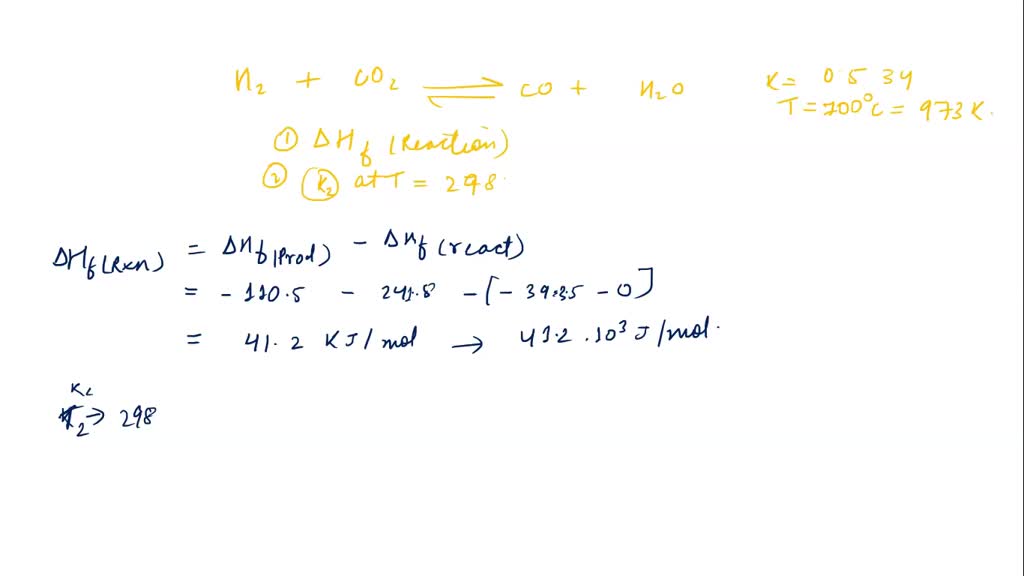 H2 + CO2 ⇌ CO + H2O K = 0.534
T = 700°C = 973 K.
① ΔHf (Reaction)
② K2 at T = 298.
ΔHf(Rxn) = ΔHf(Prod) - ΔHf (react)
= -110.5 - 241.8 -[- 393.5 - 0]
= 41.2 KJ/mol → 41.2 .10³ J/mol.
K2
T2 → 298